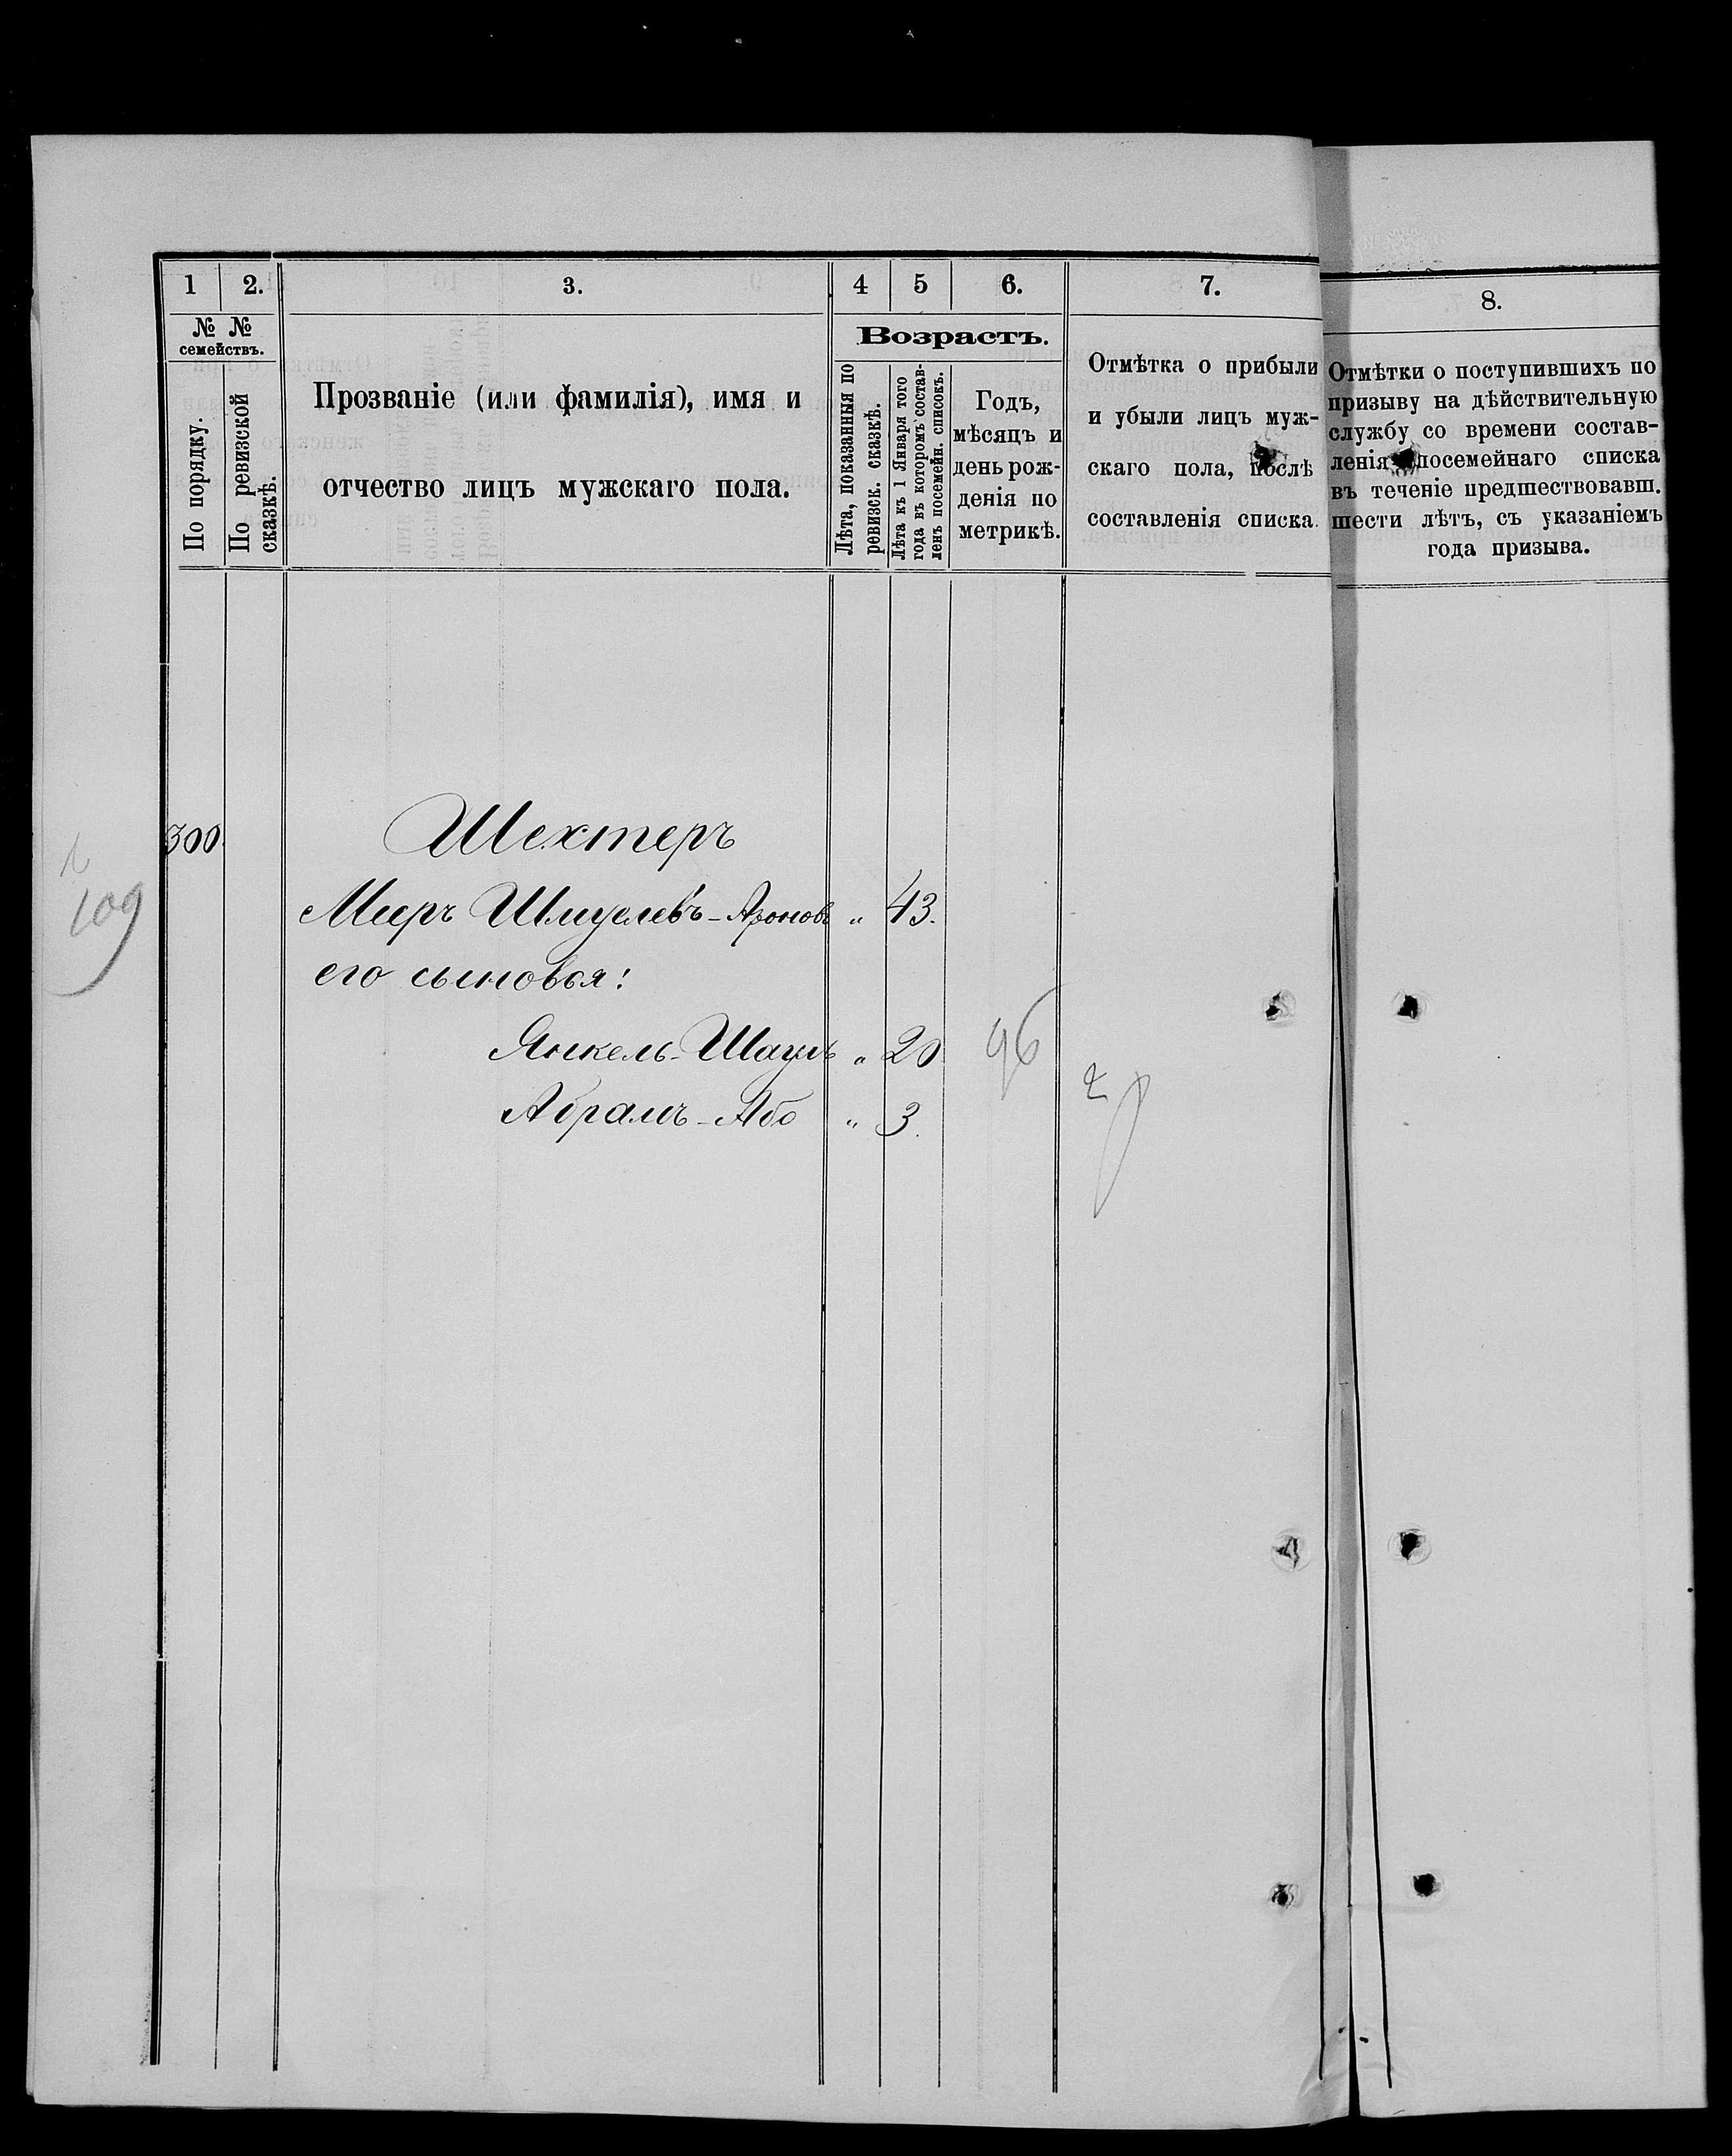 1 2. 3. 4 5 6. 7. 8.
№ №
семействъ.
По порядку.
По ревизской
сказкѣ.
Прозваніе (или фамилія), имя и
отчество лицъ мужскаго пола.
Возрастъ.
Лѣта, показанныя по
ревизск. сказкѣ.
Лѣта къ 1 Января того
года въ которомъ состав-
ленъ посемейн. списокъ.
Годъ,
мѣсяцъ и
день рож-
денія по
метрикѣ.
Отмѣтка о прибыли
и убыли лицъ муж-
скаго пола, послѣ
составленія списка.
Отмѣтки о поступившихъ по
призыву на дѣйствительную
службу со времени состав-
ленія посемейнаго списка
въ теченіе предшествовавш.
шести лѣтъ, съ указаніемъ
года призыва.
300. Шехтеръ
109
Меръ Шмулевъ-Ароновъ " 43.
его сыновья:
Янкель-Шаулъ " 20 96
Абрамъ-Або " 3.